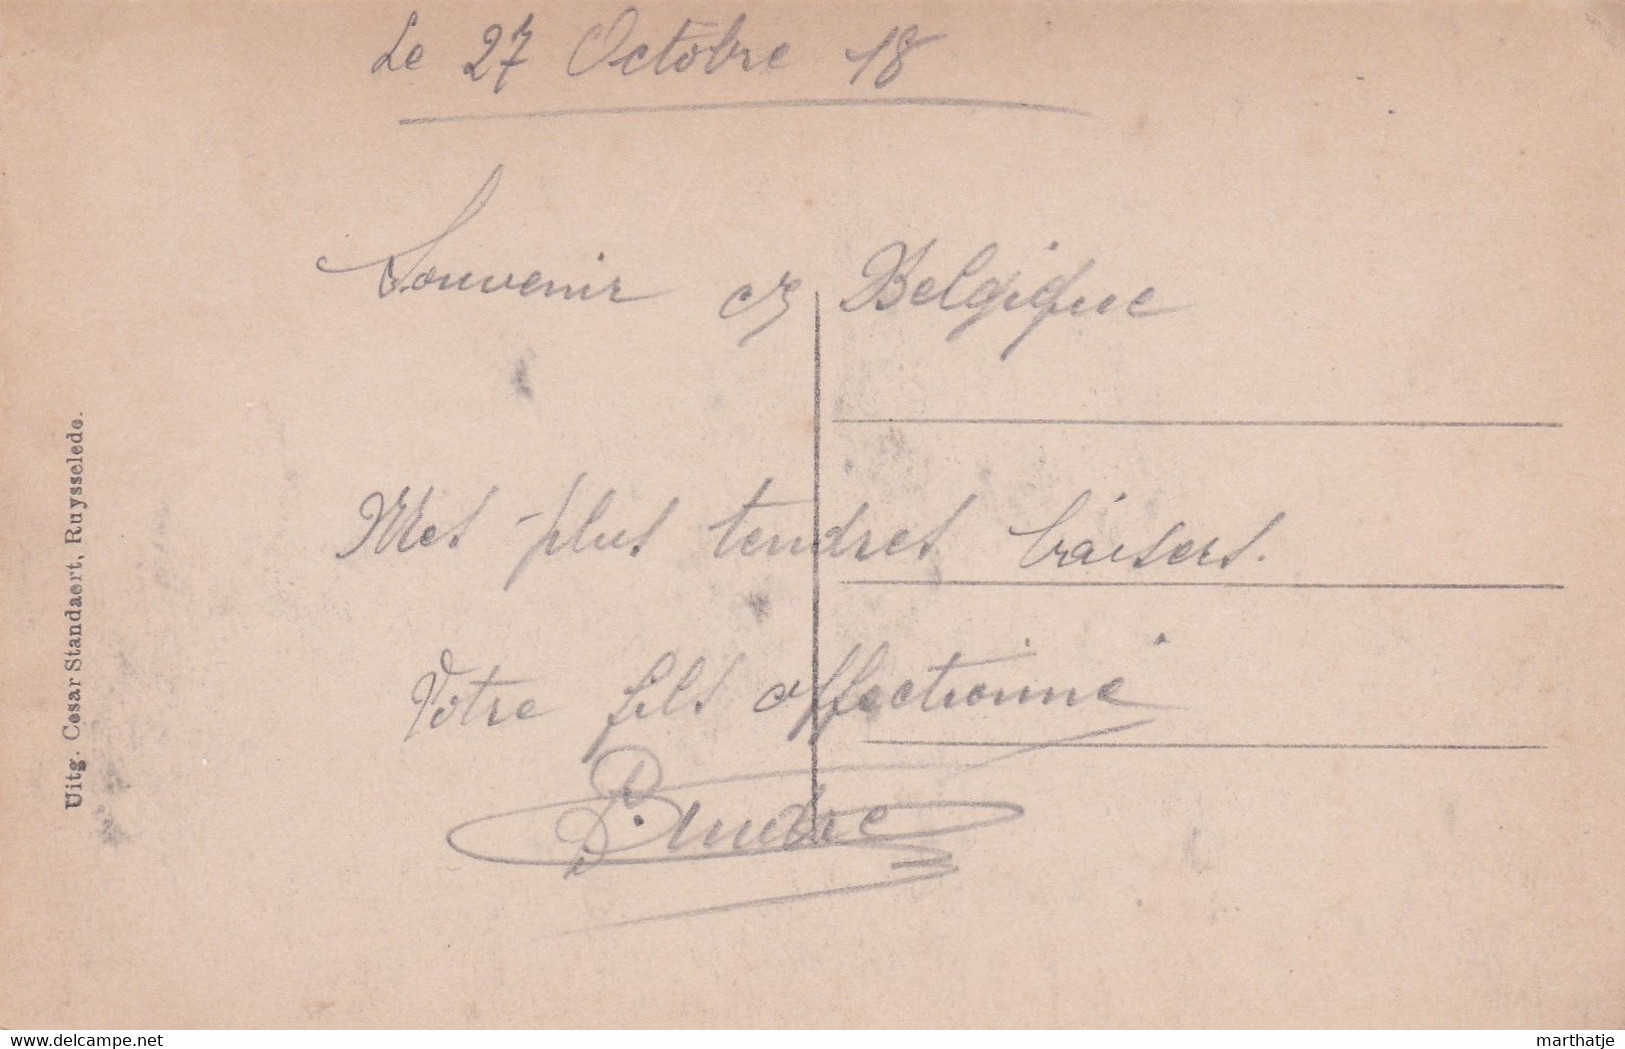 Le 27 Octobre 18
Souvenir de Belgique
Mes plus tendres baisers.
Votre fils affectionné
Uitg. Cesar Standaert, Ruysselede.
delcampe.net
marthatje